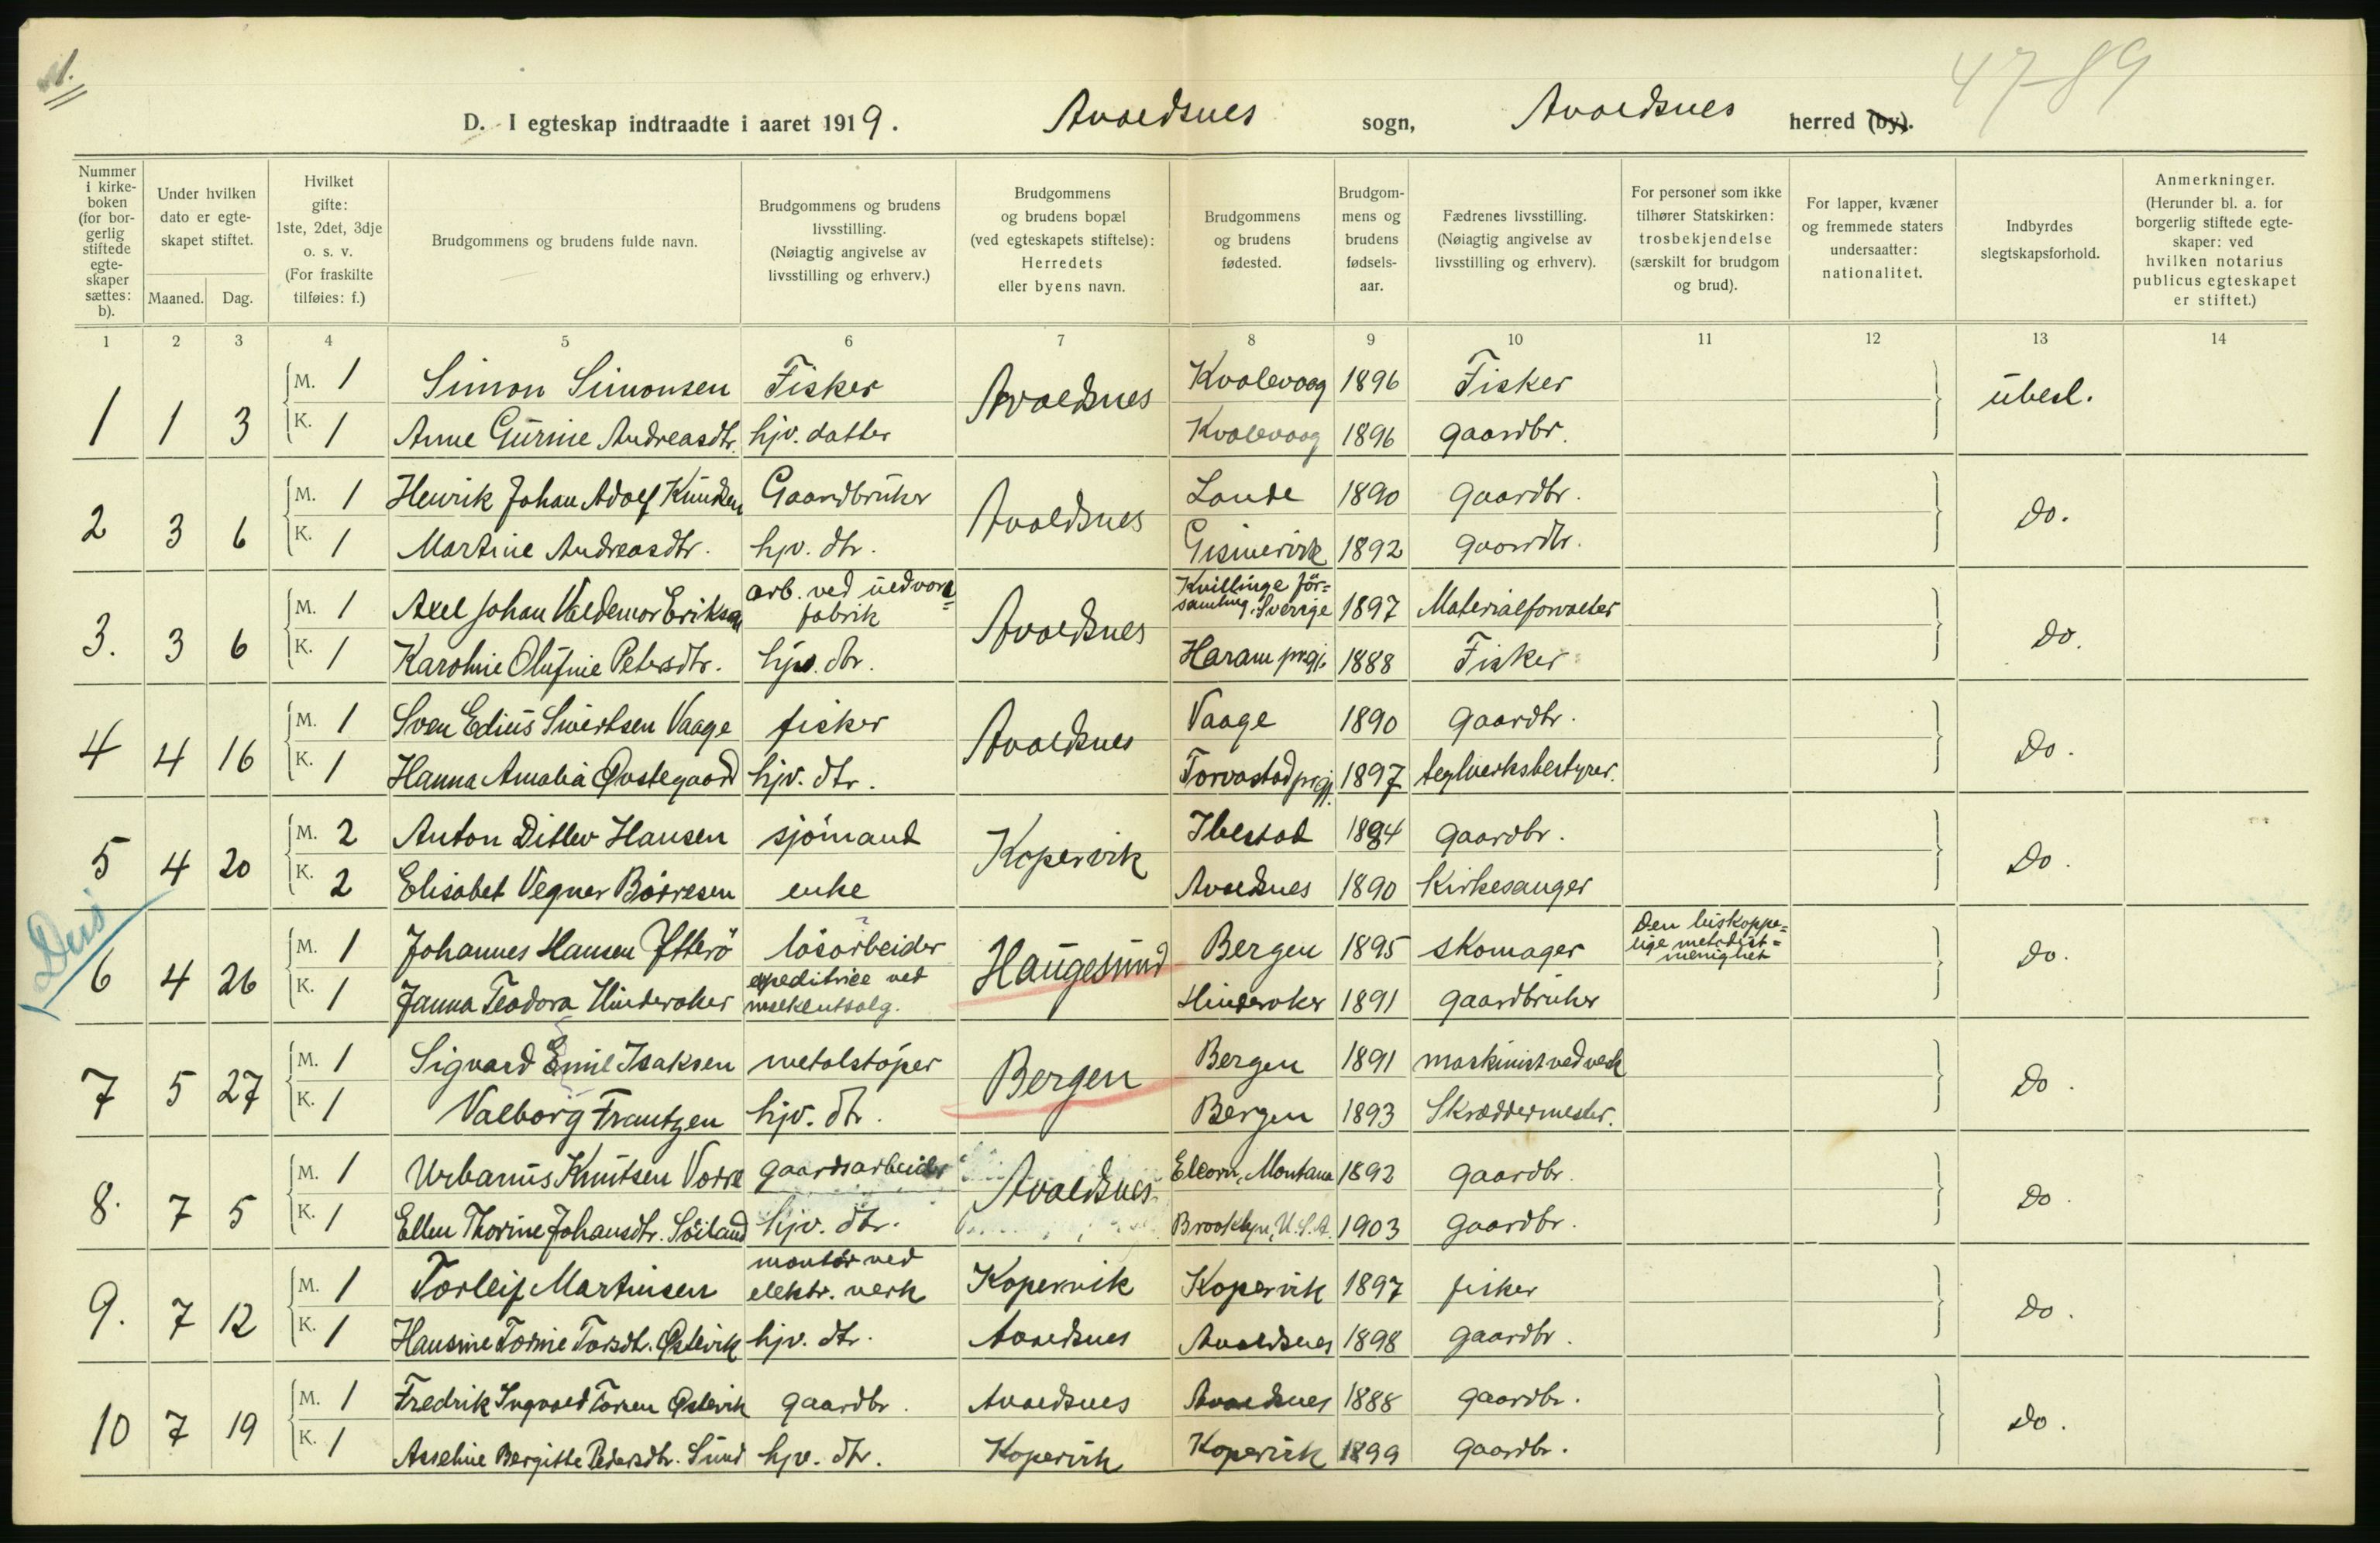 1.
47-89
D. I egteskap indtraadte i aaret 1919. Avaldsnes sogn, Avaldsnes herred (by).
Nummer i kirkeboken (for borgerlig stiftede egteskaper sættes: b).
Under hvilken dato er egteskapet stiftet.
Maaned. Dag.
Hvilket gifte: 1ste, 2det, 3dje o. s. v. (For fraskilte tilføies: f.)
Brudgommens og brudens fulde navn.
Brudgommens og brudens livsstilling. (Nøiagtig angivelse av livsstilling og erhverv.)
Brudgommens og brudens bopæl (ved egteskapets stiftelse): Herredets eller byens navn.
Brudgommens og brudens fødested.
Brudgommens og brudens fødselsaar.
Fædrenes livsstilling. (Nøiagtig angivelse av livsstilling og erhverv).
For personer som ikke tilhører Statskirken: trosbekjendelse (særskilt for brudgom og brud).
For lapper, kvæner og fremmede staters undersaatter: nationalitet.
Indbyrdes slegtskapsforhold.
Anmerkninger. (Herunder bl. a. for borgerlig stiftede egteskaper: ved hvilken notarius publicus egteskapet er stiftet.)
1 2 3 4 5 6 7 8 9 10 11 12 13 14
1 1 3 M. 1 Simon Simonsen Fisker Avaldsnes Kvalevaag 1896 Fisker ubesl.
K. 1 Anne Gurine Andreasdtr. hjv. datter Kvalevaag 1896 gaardbr.
2 3 6 M. 1 Henrik Johan Adolf Knudsen Gaardbruker Avaldsnes Lande 1890 gaardbr. do.
K. 1 Martine Andreasdtr. hjv. dtr. Gismervik 1892 gaardbr.
3. 3 6 M. 1 Axel Johan Valdemar Erikson arb. ved uldvarefabrik Avaldsnes Kvillinge församling, Sverige 1897 Materialforvalter do.
K. 1 Karoline Olufine Petersdtr. hjv. dtr. Haram prgj. 1888 Fisker
4 4 16 M. 1 Sven Edius Sivertsen Vaage fisker Avaldsnes Vaage 1890 gaardbr. do.
K. 1 Hanna Amalia Østegaard hjv. dtr. Torvastad prgj. 1897 teglverksbestyrer.
5 4 20 M. 2 Anton Ditlev Hansen sjömand Kopervik Ibestad 1884 gaardbr. do.
K. 2 Elisabet Vegner Börresen enke Avaldsnes 1890 Kirkesanger
6 4 26 M. 1 Johannes Hansen Ytterö lösarbeider Haugesund Bergen 1895 skomager Den biskoppelige metodistmenighet do.
K. 1 Janna Teodora Hinderaker expeditrice ved melkeutsalg. Hinderaker 1891 gaardbruker
7 5 27 M. 1 Sigvard Emil Isaksen metalstöper Bergen Bergen 1891 maskinist ved verk do.
K. 1 Valborg Frantzen hjv. dtr. Bergen 1893 Skræddermester.
8. 7 5 M. 1 Urbanus Knutsen Vorre gaardsarbeider Avaldsnes Elcorn, Montana 1892 gaardbr. do.
K. 1 Ellen Thorine Johansdtr. Söiland hjv. dtr. Brooklyn, U.S.A. 1903 gaardbr.
9. 7 12 M. 1 Torleif Martinsen montör ved elektr. verk Kopervik Kopervik 1897 fisker do.
K. 1 Hansine Torine Torsdtr. Østevik hjv. dtr. Avaldsnes Avaldsnes 1898 gaardbr.
10 7 19 M. 1 Fredrik Ingvald Torsen Østevik gaardbr. Avaldsnes Avaldsnes 1888 gaardbr. do.
K. 1 Asseline Bergitte Pedersdtr. Sund hjv. dtr. Kopervik Kopervik 1899 gaardbr.